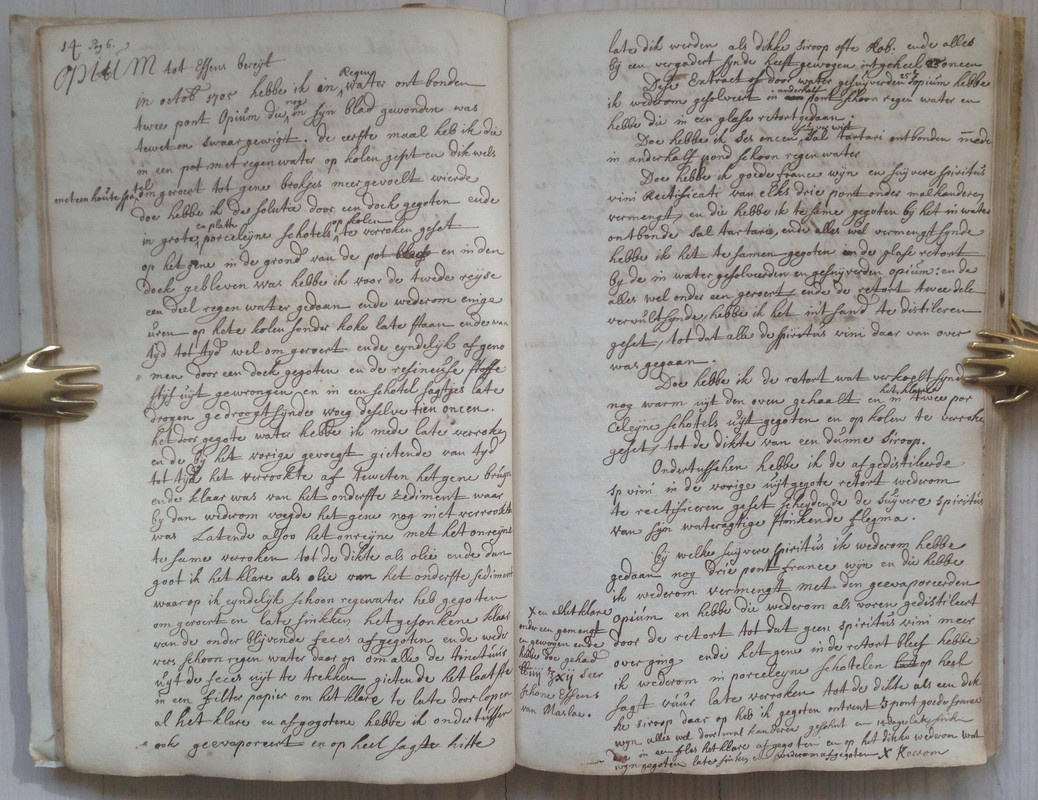 14 Pag 6.
Opium tot Essens bereyt
in octob 1705 hebbe ik in Regen water ontbonden
twee pont Opium die nog in syn blad gewonden was
te weten swaar gewigt. de eerste maal heb ik die
in een pot met regen water op kolen geset en dikwels
met een houte spatel om geroert tot gene brokjes meer gevoelt wierde
doe hebbe ik de solutie door een dock gegoten ende
in grote en platte porceleyne schotels op kolen te verroken geset
op het gene in de grond van de pot en in den
doek gebleven was hebbe ik voor de twede reyse
een deel regen water gedaan ende wederom enige
uren op hete kolen sonder koke late staan ende van
tyd tot tyd wel om geroert ende eyndelyk af geno
men door een doek gegoten en de resineuse stoffe
styf uyt gewrongen en in een schotel sagtjes late
drogen gedroogt synde woeg deselve tien oncen.
het door gegote water hebbe ik mede late verroken
en de by het vorige gevoegt gietende van tyd
tot tyd het verrookte af te weten het gene bruyn
ende klaar was van het onderste zediment waar
by dan wederom voegde het gene nog niet verrookt
was Latende alsoo het onreyne met het onreyne
te same verroken tot de dikte als olie ende dan
goot ik het klare als olie van het onderste sediment
waar op ik eyndelyk schoon regewater heb gegoten
om geroert en late sinken, het gesonkene klaar
van de onder blyvende feces afgegoten ende weder
vers schoon regen water daar op om alle de tinctuur
uyt de feces uyt te trekken, gietende het laatste
in een filter papier om het klare te late door lopen
al het klare en afgegotene hebbe ik ondertussen
ook geevaporeert en op heel sagte hitte
late dik werden als dikke siroop ofte Rob. ende alles
by een vergadert synde heeft gewogen in geheel oncen
Dese Extract of door water gesuyverden opium hebbe
ik wederom gesolveert in anderhalf pont schoon regen water en
hebbe die in een glase retort gedaan.
Doe hebbe ik ses oncen Sal tartari ontbonden mede
in anderhalf pond schoon regen water
Doe hebbe ik goede france wyn en suyvere spiritus
vini Rectificati van elks drie pont onder malkanderen
vermengt, en die hebbe ik te same gegoten by het in water
ontbonde sal tartari, ende alles wel vermengt synde
hebbe ik het te samen gegoten in de glase retort
by de in water gesolveerden en gesuyverden opium: en de
alles wel onder een geroert, ende de retort twee dele
vervult synde, hebbe ik het int sand te distileren
geset, tot dat alle de spiritus vini daar van over
was gegaan.
Doe hebbe ik de retort wat verkoelt synde
nog warm uyt den oven gehaalt en het klare in twee por
celeyne schotels uyt gegoten en op kolen te verroke
geset, tot de dikte van een dunne siroop.
Ondertusschen hebbe ik de afgedistileerde
sp vini in de vorige uytgegote retort wederom
te rectificeren geset scheydende de suyvere spiritus
van syn wateragtige stinkende flegma.
By welke suyvere spiritus ik wederom hebbe
gedaan nog drie pont france wyn en die hebbe
ik wederom vermengt met den geevaporeerden
opium en hebbe die wederom als voren gedistileert
door de retort tot dat geen spiritus vini meer
over ging. ende het gene in de retort bleef hebbe
ik wederom in porceleyne schotelen op heel
sagt vuur late verroken tot de dikte als een dik
ke siroop daar op heb ik gegoten ontrent pont goede france
wyn alles wel door malkanderen geschut en dage late sinken
in een fles het klare afgegoten en op het dikke wederom wat
wyn gegoten late sinken en wederom afgegoten X
X en al het klare
onder een gemengt
en gewogen ende
hebbe doe gehad
seer
schone Essens
van Maslac.